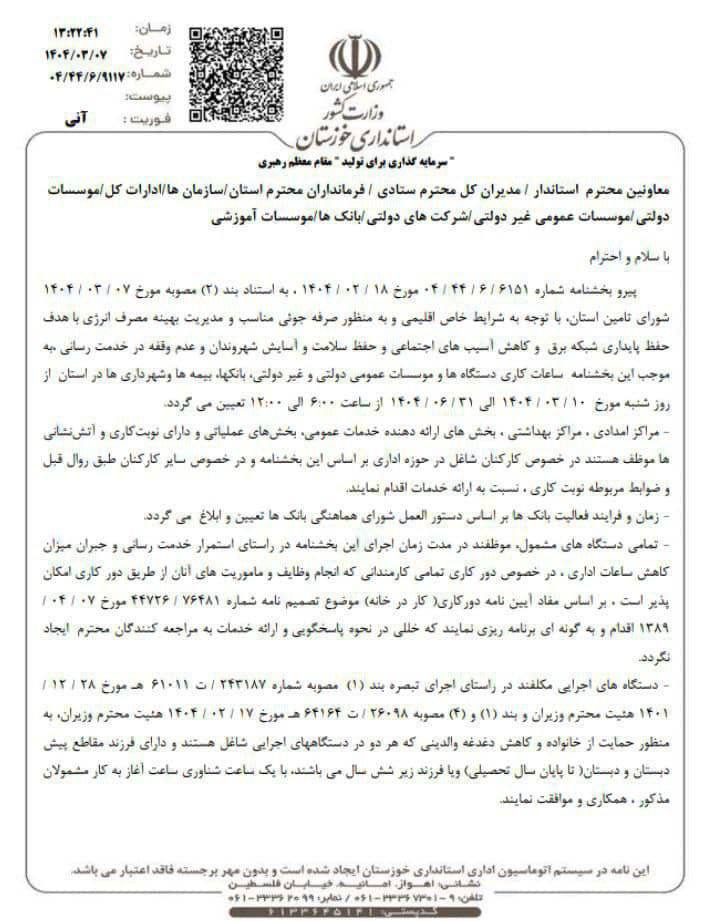 زمان: ۱۳:۲۲:۴۱
تاریخ: ۱۴۰۴/۰۳/۰۷
شماره: ۰۴/۴۴/۶/۹۱۱۷
پیوست:
فوریت : آنی
جمهوری اسلامی ایران
وزارت کشور
استانداری خوزستان
" سرمایه گذاری برای تولید " مقام معظم رهبری
معاونین محترم استاندار / مدیران کل محترم ستادی / فرمانداران محترم استان/سازمان ها/ادارات کل/موسسات
دولتی/موسسات عمومی غیر دولتی/شرکت های دولتی/بانک ها/موسسات آموزشی
با سلام و احترام
پیرو بخشنامه شماره ۶۱۵۱ / ۶ / ۴۴ / ۰۴ مورخ ۱۸ / ۰۲ / ۱۴۰۴ ، به استناد بند (۲) مصوبه مورخ ۰۷ / ۰۳ / ۱۴۰۴
شورای تامین استان، با توجه به شرایط خاص اقلیمی و به منظور صرفه جوئی مناسب و مدیریت بهینه مصرف انرژی با هدف
حفظ پایداری شبکه برق و کاهش آسیب های اجتماعی و حفظ سلامت و آسایش شهروندان و عدم وقفه در خدمت رسانی ،به
موجب این بخشنامه ساعات کاری دستگاه ها و موسسات عمومی دولتی و غیر دولتی، بانکها، بیمه ها وشهرداری ها در استان از
روز شنبه مورخ ۱۰ / ۰۳ / ۱۴۰۴ الی ۳۱ / ۰۶ / ۱۴۰۴ از ساعت ۶:۰۰ الی ۱۲:۰۰ تعیین می گردد.
- مراکز امدادی ، مراکز بهداشتی ، بخش های ارائه دهنده خدمات عمومی، بخش‌های عملیاتی و دارای نوبت‌کاری و آتش‌نشانی
ها موظف هستند در خصوص کارکنان شاغل در حوزه اداری بر اساس این بخشنامه و در خصوص سایر کارکنان طبق روال قبل
و ضوابط مربوطه نوبت کاری ، نسبت به ارائه خدمات اقدام نمایند.
- زمان و فرایند فعالیت بانک ها بر اساس دستور العمل شورای هماهنگی بانک ها تعیین و ابلاغ می گردد.
- تمامی دستگاه های مشمول، موظفند در مدت زمان اجرای این بخشنامه در راستای استمرار خدمت رسانی و جبران میزان
کاهش ساعات اداری ، در خصوص دور کاری تمامی کارمندانی که انجام وظایف و ماموریت های آنان از طریق دور کاری امکان
پذیر است ، بر اساس مفاد آیین نامه دورکاری( کار در خانه) موضوع تصمیم نامه شماره ۷۶۴۸۱ / ۴۴۷۲۶ مورخ ۰۷ / ۰۴ /
۱۳۸۹ اقدام و به گونه ای برنامه ریزی نمایند که خللی در نحوه پاسخگویی و ارائه خدمات به مراجعه کنندگان محترم ایجاد
نگردد.
- دستگاه های اجرایی مکلفند در راستای اجرای تبصره بند (۱) مصوبه شماره ۲۴۳۱۸۷ / ت ۶۱۰۱۱ هـ مورخ ۲۸ / ۱۲ /
۱۴۰۱ هئیت محترم وزیران و بند (۱) و (۴) مصوبه ۲۶۰۹۸ / ت ۶۴۱۶۴ هـ مورخ ۱۷ / ۰۲ / ۱۴۰۴ هئیت محترم وزیران، به
منظور حمایت از خانواده و کاهش دغدغه والدینی که هر دو در دستگاههای اجرایی شاغل هستند و دارای فرزند مقاطع پیش
دبستان و دبستان( تا پایان سال تحصیلی) ویا فرزند زیر شش سال می باشند، با یک ساعت شناوری ساعت آغاز به کار مشمولان
مذکور ، همکاری و موافقت نمایند.
این نامه در سیستم اتوماسیون اداری استانداری خوزستان ایجاد شده است و بدون مهر برجسته فاقد اعتبار می باشد.
نشانی: اهواز، امانیه، خیابان فلسطین
تلفن: ۹-۳۳۳۶۷۳۰۱-۰۶۱ / نمابر: ۳۳۳۶۲۰۹۹-۰۶۱
کدپستی: ۶۱۳۳۶۴۵۱۴۱